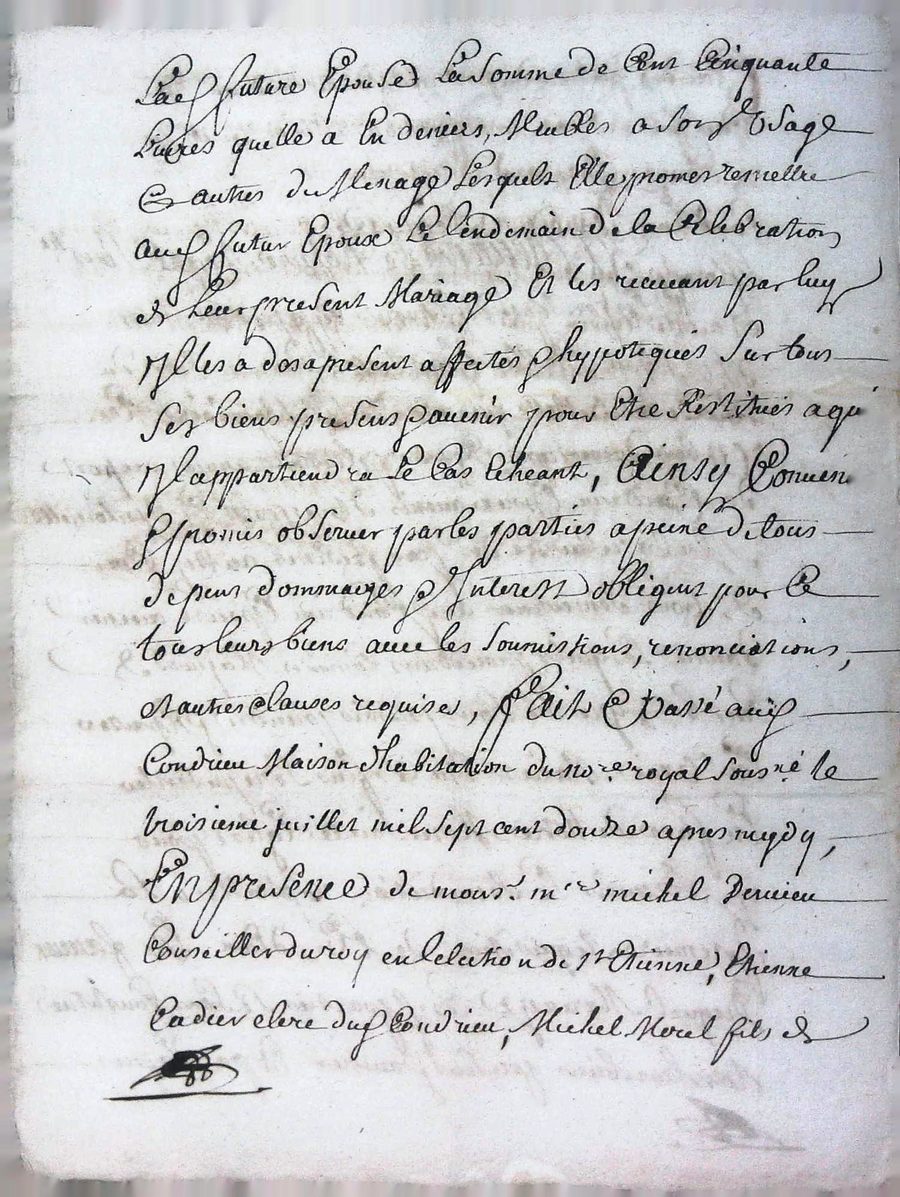 Lad future Epouse La somme de Cent Cinquante
Livres quelle a En deniers, Meubles a son Usage
& autres de Menage Lesquels Elle promet remettre
aud futur Epoux Le lendemain de la Celebration
de Leur present Mariage Et les recevant par luy
Il les a des apresent affectés & hypotequés Sur tous
Ses biens presens & avenir pour Etre Restitués a qui
Il appartiendra Le Cas Echeant, Ainsy Conven
& promis observer par les parties a peine de tous
depens dommages & Interest obligent pour Ce
tous leurs biens avec les Soumissions, renonciations,
et autres Clauses requises, Fait & passé aud
Condrieu Maison d'habitation du nore royal Sousné le
troisieme juillet mil sept cent douze apres mydy,
En presence de monsr. mre michel Dervieu
Conseiller du roy en lelection de st Etienne, Etienne
Cadier clerc dud Condrieu, Michel Morel fils de